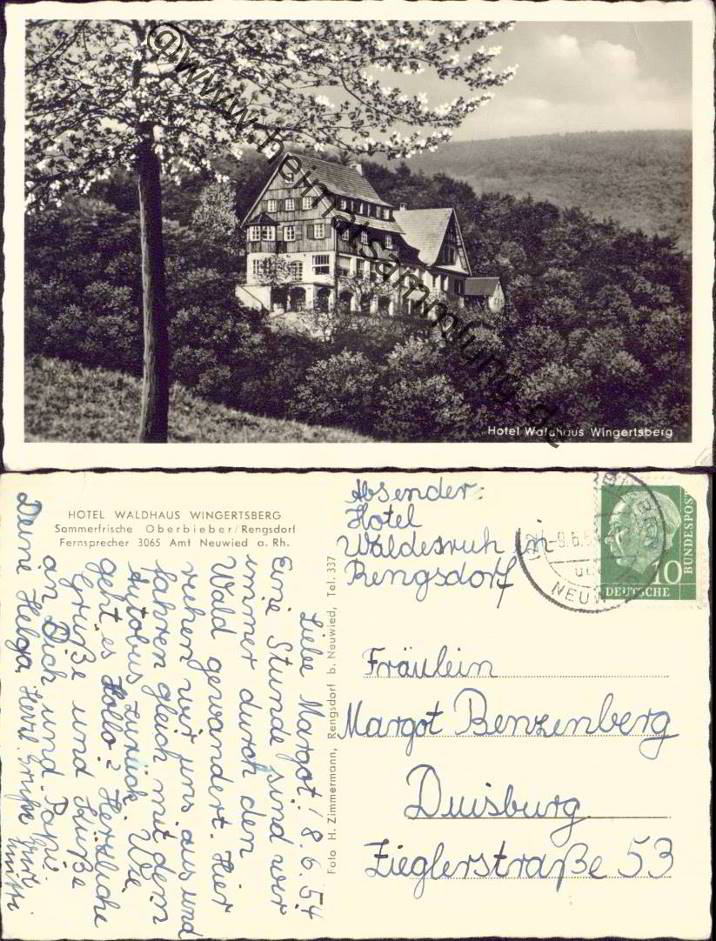 @www.heimatsammlung.de
Hotel Waldhaus Wingertsberg
HOTEL WALDHAUS WINGERTSBERG
Sommerfrische Oberbieber/Rengsdorf
Fernsprecher 3065 Amt Neuwied a. Rh.
Liebe Margot! 8.6.54
Eine Stunde sind wir
immer durch den
Wald gewandert. Hier
ruhen wir uns aus und
fahren gleich mit dem
Autobus zurück. Wie
geht es Hollo? Herzliche
Grüße und Küße
an Dich und Papi.
Deine Helga Herzl. Grüße
Foto H. Zimmermann, Rengsdorf b. Neuwied, Tel. 337
Absender:
Hotel
Waldesruh in
Rengsdorf
NEUW
10
DEUTSCHE
BUNDESPOST
Fräulein
Margot Benzenberg
Duisburg
Zieglerstraße 53